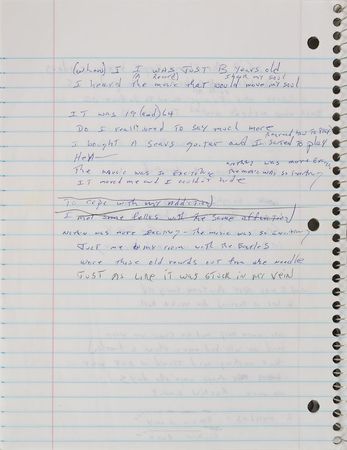 (when) I I WAS JUST 13 years old
(A sound) shook my soul
I heard the music that would move my soul
IT WAS 19 (and) 64
Do I really need to say much more
learned how to play
I bought A Sears guitar and I started to play
Hey
nothing was more exciting
The music was so exciting the music was so exciting
IT moved me and I couldn't hide
To cope with my addiction
I met some folks with the same affliction
Nothin was more exciting - the music was so exciting
Just me in my room with the Beatles
Wore those old records out from the needle
JUST AS LIKE IT WAS STUCK IN MY VEIN